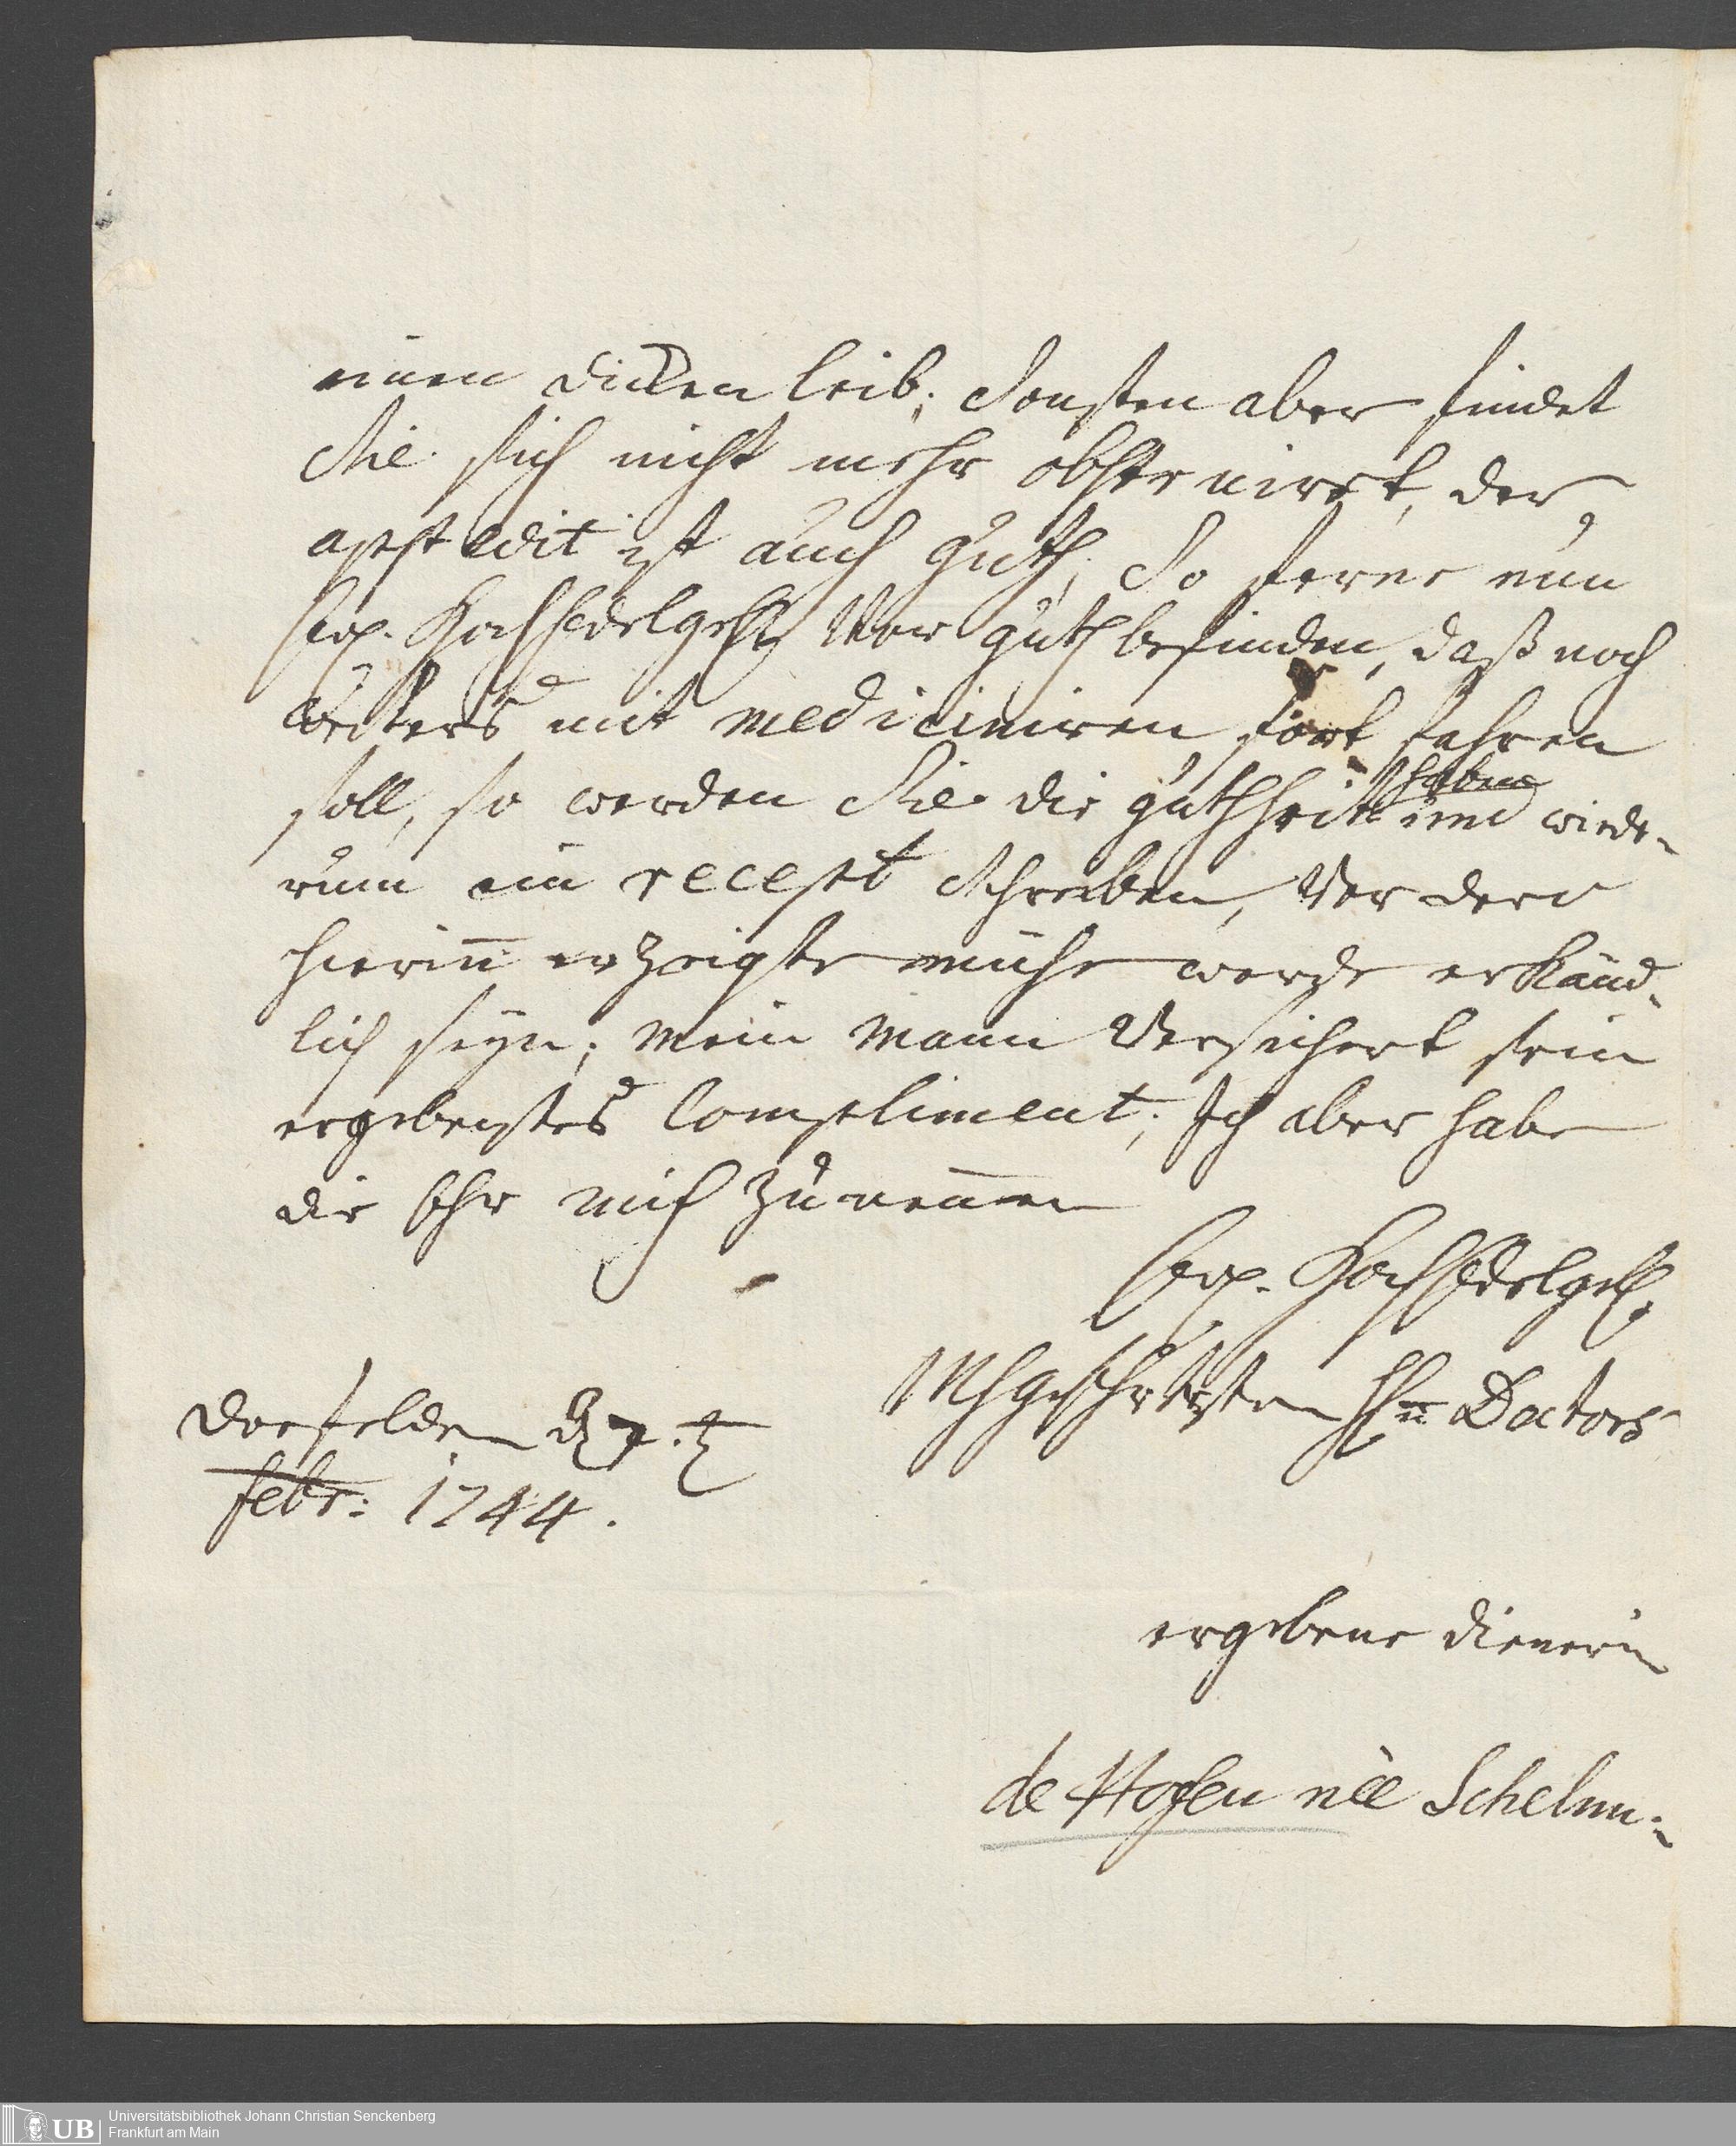 einen dicken leib; Sonsten aber findet
Sie sich nicht mehr obstruirt, der
appetdit ist auch guth; So ferne nun
Ew. HochEdelgeb. Vor guth befinden, daß noch
weiters mit mediciniren fort fahren
soll, so werden Sie die guthheit haben und wiede-
rum ein recept schreiben, Vor dero
hierin̅ erzeigte mühe werde erkänd-
lich seyn; mein mann Versichert sein
ergebenstes Compliment; Ich aber habe
die Ehr mich zu nen̅en
Ew. HochEdelgeb.
MhgeEhrtesten H̅n̅ Doctors
Dorfelden d. 7. t
febr: 1744.
ergebene dienerin
de Hofen née Schelm.
UB
Universitätsbibliothek Johann Christian Senckenberg
Frankfurt am Main